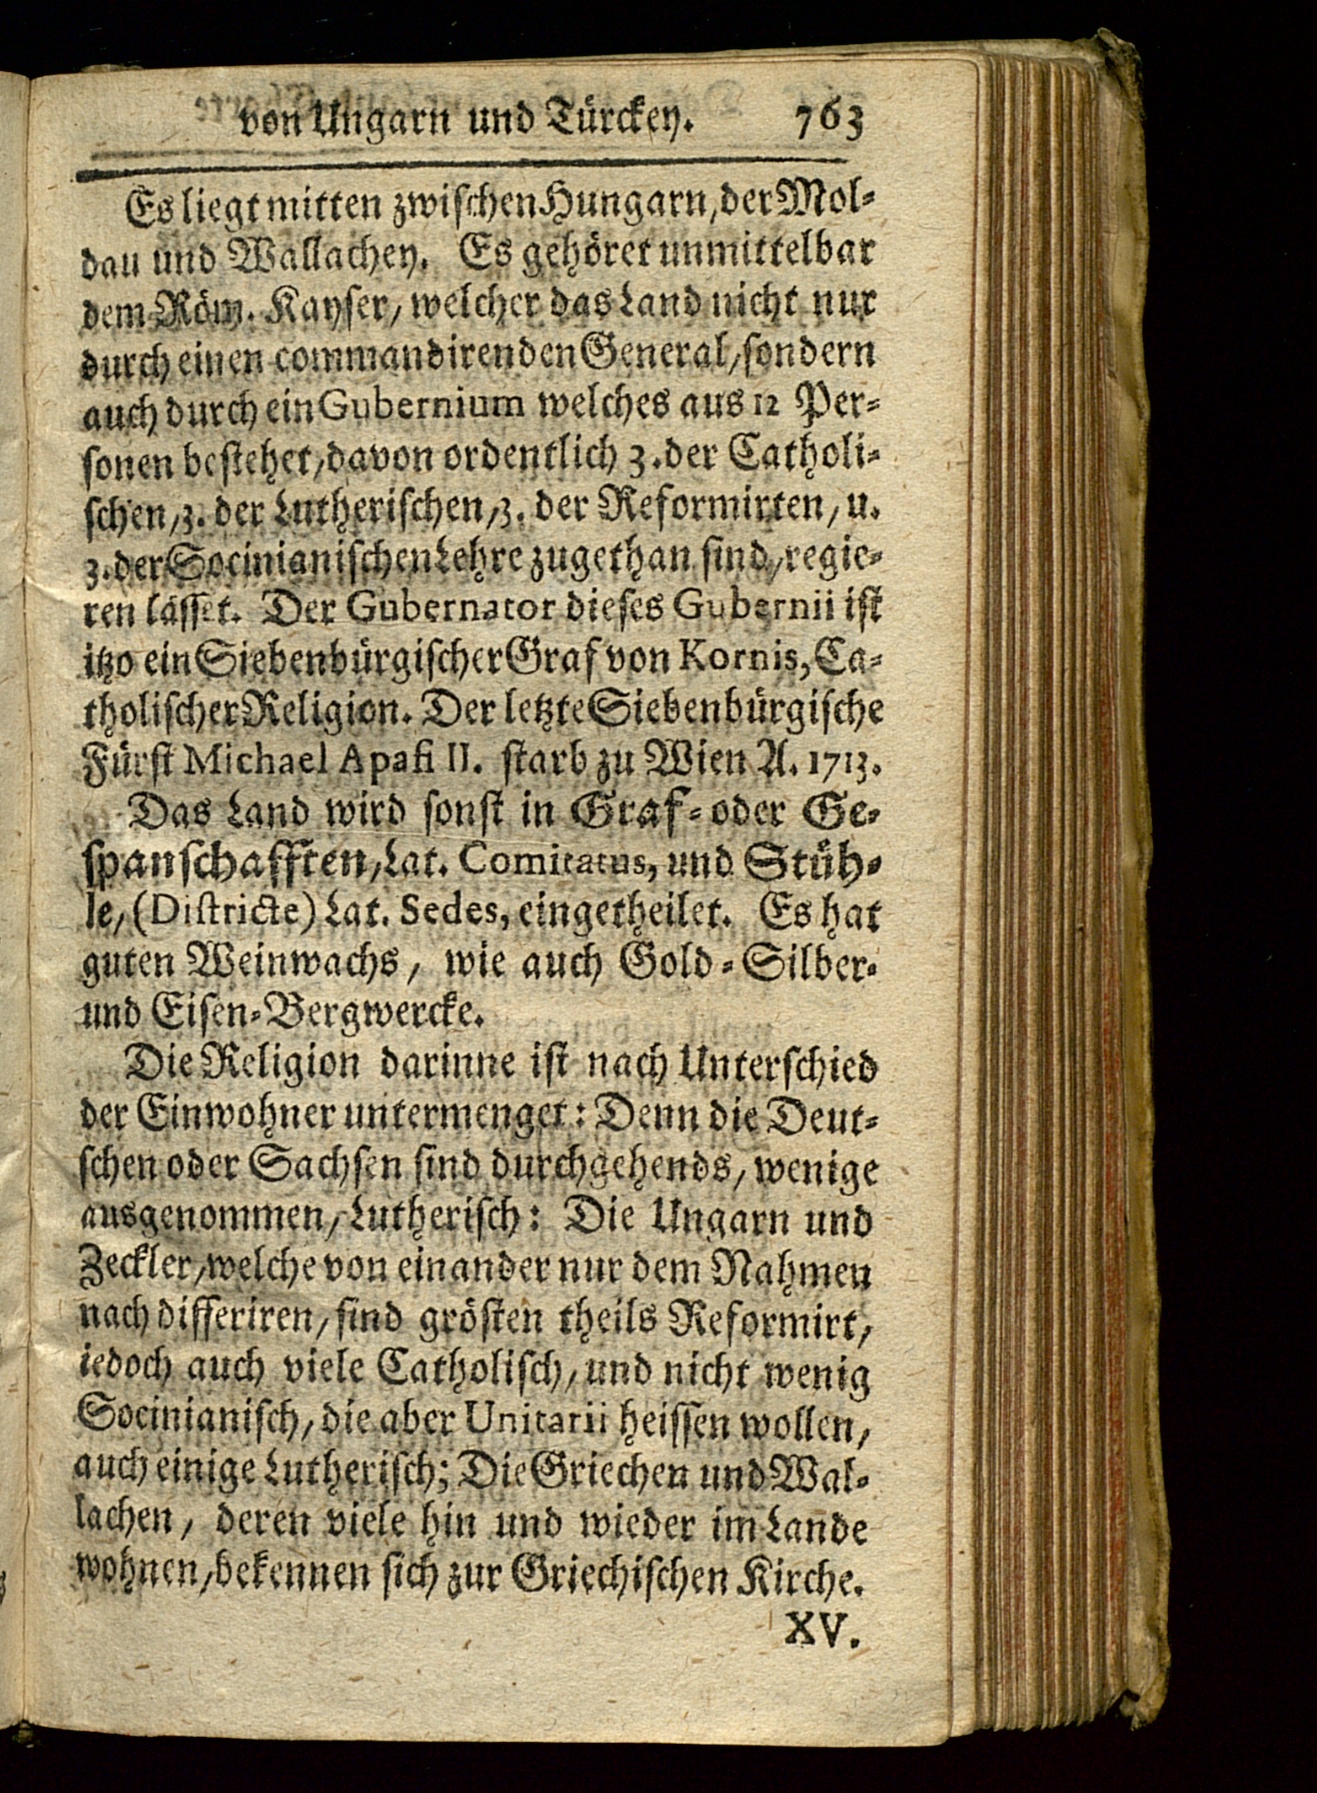 von Ungarn und Türckey. 763
Es liegt mitten zwischen Hungarn, der Mol-
dau und Wallachey. Es gehöret unmittelbar
dem Röm. Kayser, welcher das Land nicht nur
durch einen commandirenden General, sondern
auch durch ein Gubernium welches aus 12 Per-
sonen bestehet, davon ordentlich 3. der Catholi-
schen, 3. der Lutherischen, 3. der Reformirten, u.
3. der Socinianischen Lehre zugethan sind, regie-
ren lässet. Der Gubernator dieses Gubernii ist
itzo ein Siebenbürgischer Graf von Kornis, Ca-
tholischer Religion. Der letzte Siebenbürgische
Fürst Michael Apafi II. starb zu Wien A. 1713.
Das Land wird sonst in Graf- oder Ge-
spanschafften, Lat. Comitatus, und Stüh-
le, (Districte) Lat. Sedes, eingetheilet. Es hat
guten Weinwachs, wie auch Gold- Silber-
und Eisen-Bergwercke.
Die Religion darinne ist nach Unterschied
der Einwohner untermenget: Denn die Deut-
schen oder Sachsen sind durchgehends, wenige
ausgenommen, Lutherisch: Die Ungarn und
Zeckler, welche von einander nur dem Nahmen
nach differiren, sind grösten theils Reformirt,
iedoch auch viele Catholisch, und nicht wenig
Socinianisch, die aber Unitarii heissen wollen,
auch einige Lutherisch; Die Griechen und Wal-
lachen, deren viele hin und wieder im Lande
wohnen, bekennen sich zur Griechischen Kirche.
XV.